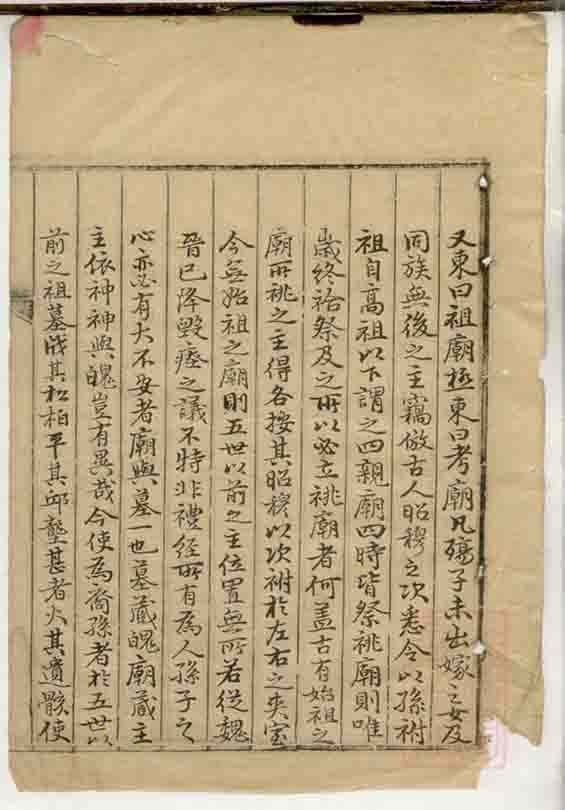 又東曰祖廟極東曰考廟凡殤子未出嫁之女及
同族無後之主竊倣古人昭穆之次悉令以孫祔
祖自高祖以下謂之四親廟四時皆祭祧廟則唯
歲終祫祭及之所以必立祧廟者何盖古有始祖之
廟所祧之主得各按其昭穆以次祔於左右之夾室
今無始祖之廟則五世以前之主位置無所若從魏
晉已降毀瘞之議不特非禮經所有為人孫子之
心亦必有大不安者廟與墓一也墓藏魄廟藏主
主依神神與魄豈有異哉今使為裔孫者於五世以
前之祖墓戕其松柏平其邱壟甚者火其遺骸使